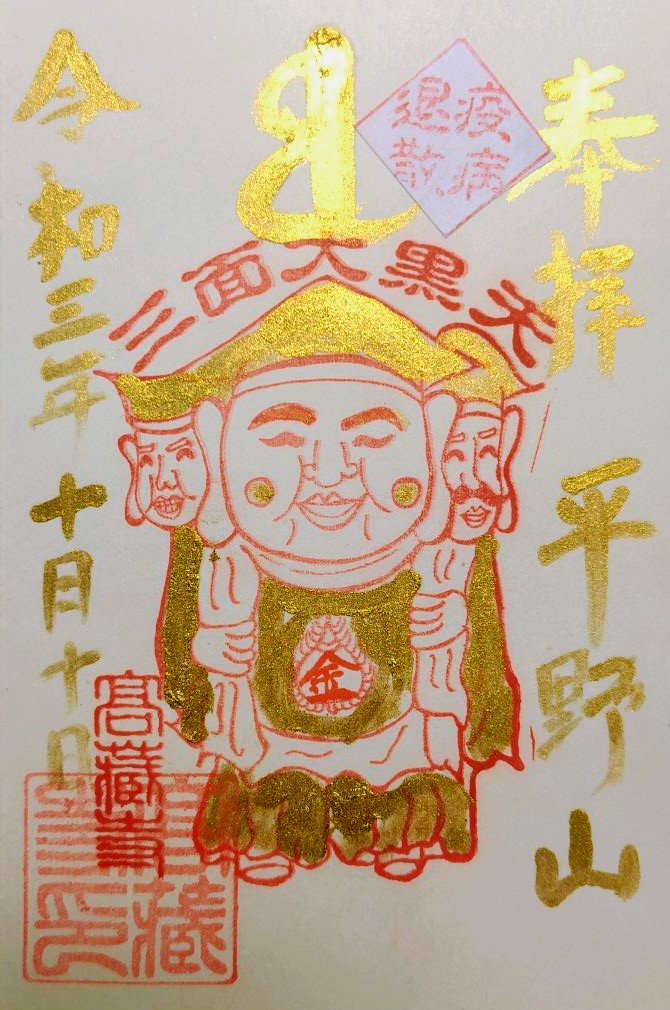 奉拝
平野山
疫病
退散
三面大黒天
金
令和三年十月十日
高蔵寺